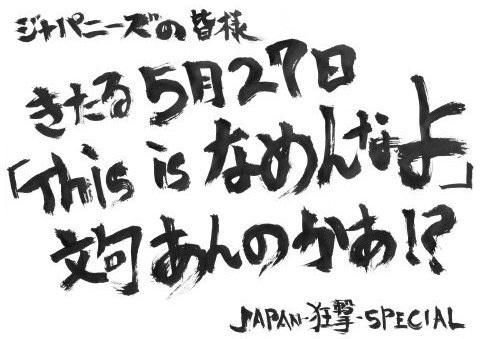 ジャパニーズの皆様
きたる5月27日
「This is なめんなよ」
文句あんのかあ!?
JAPAN-狂撃-SPECIAL